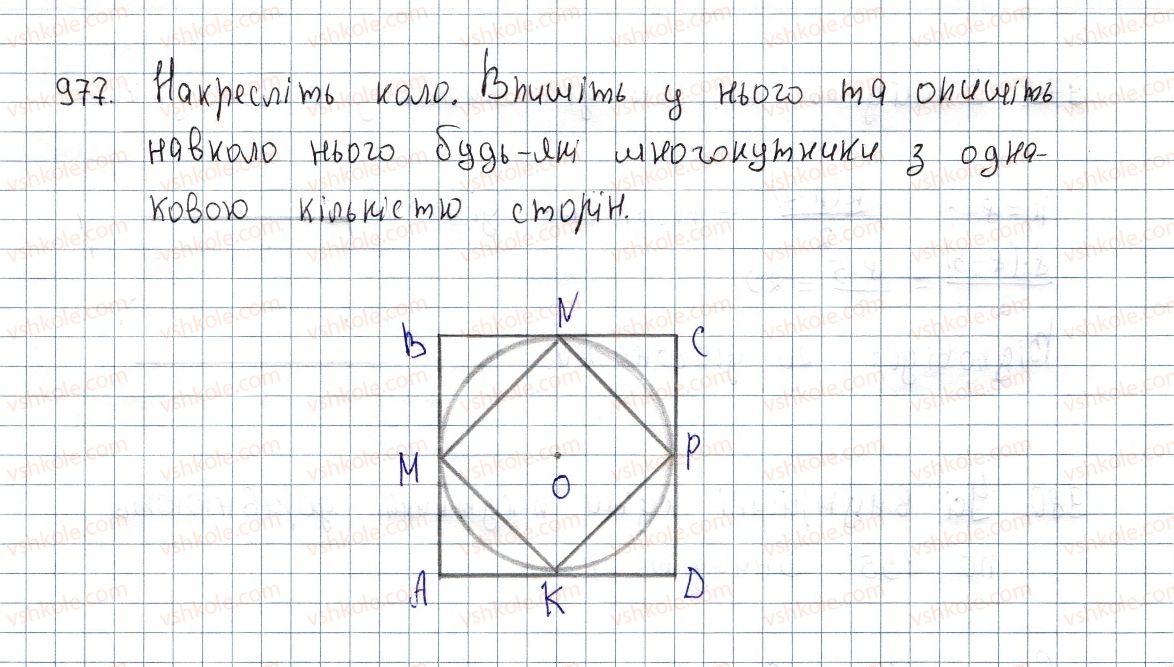 977. Накресліть коло. Впишіть у нього та опишіть
навколо нього будь-які многокутники з одна-
ковою кількістю сторін.
N
B C
M P
O
A K D
vshkole.com